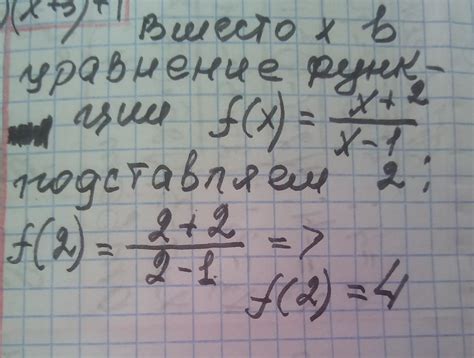 )(x+3)+1
Вместо x в
уравнение функ-
ции f(x) = x+2 / x-1
подставляем 2:
f(2) = 2+2 / 2-1 =>
f(2) = 4